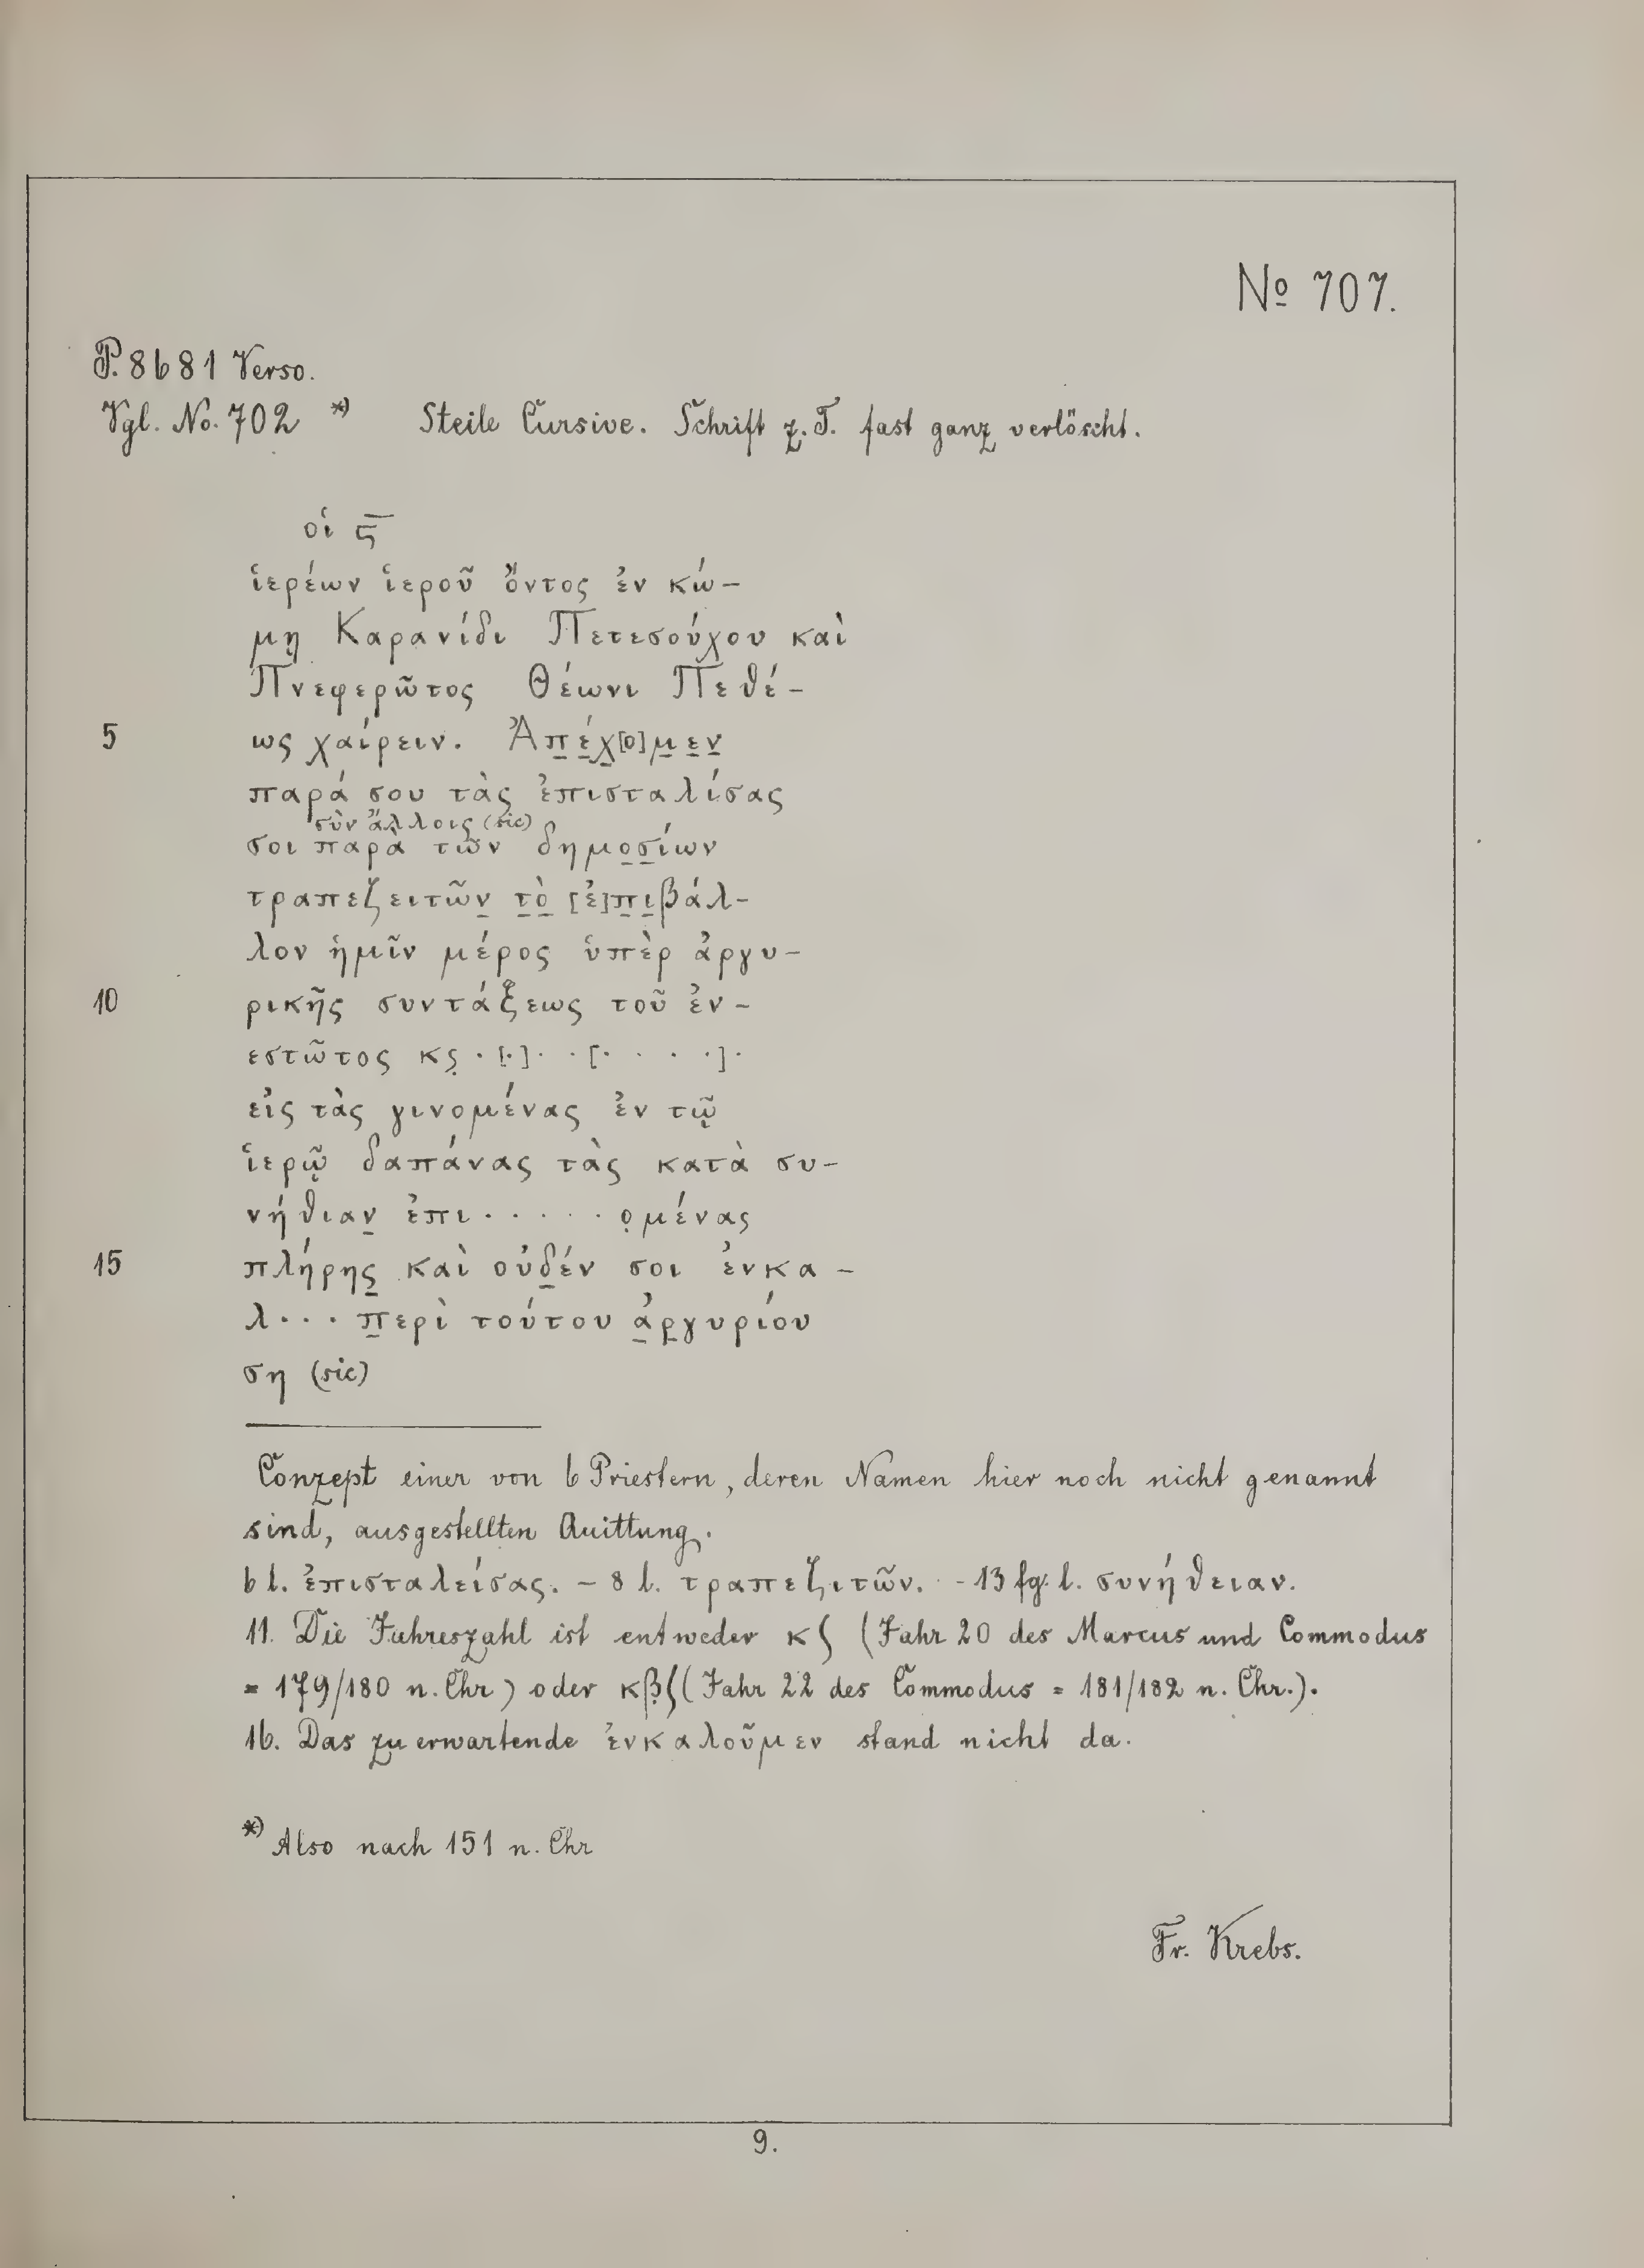 № 707.
P. 8681 Verso.
Vgl. No. 702 *) Steile Cursive. Schrift z. T. fast ganz verlöscht.
οἱ ϛ̅
ἱερέων ἱεροῦ ὄντος ἐν κώ-
μῃ Καρανίδι Πετεσούχου καὶ
Πνεφερῶτος Θέωνι Πεθέ-
5 ως χαίρειν. Ἀπ̲έ̲χ̲[ο]μ̲ε̲ν̲
παρά σου τὰς ἐπισταλίσας
σὺν ἄλλοις (sic)
σοι παρὰ τῶν δημο̲σ̲ίων
τραπεζειτῶν̲ τ̲ὸ̲ [ἐ]π̲ι̲βάλ-
λον ἡμῖν μέρος ὑπὲρ ἀργυ-
10 ρικῆς συντάξεως τοῦ ἐν-
εστῶτος κϛ̣ · [·] · · [· · · ·] ·
εἰς τὰς γινομένας ἐν τῷ
ἱερῷ δαπάνας τὰς κατὰ συ-
νήθιαν̲ ἐπι · · · · · ο̣μένας
15 πλήρης̲ καὶ οὐδ̲έν σοι ἐνκα-
λ · · · π̲ερὶ τούτου ἀ̲ρ̲γυρίου
ση (sic)
Conzept einer von 6 Priestern, deren Namen hier noch nicht genannt
sind, ausgestellten Quittung.
6 l. ἐπισταλείσας. – 8 l. τραπεζιτῶν. – 13 fg. l. συνήθειαν.
11. Die Jahreszahl ist entweder κ ʃ (Jahr 20 des Marcus und Commodus
= 179/180 n. Chr) oder κβ̣ ʃ (Jahr 22 des Commodus = 181/182 n. Chr.).
16. Das zu erwartende ἐνκαλοῦμεν stand nicht da.
*) Also nach 151 n. Chr
Fr. Krebs.
9.